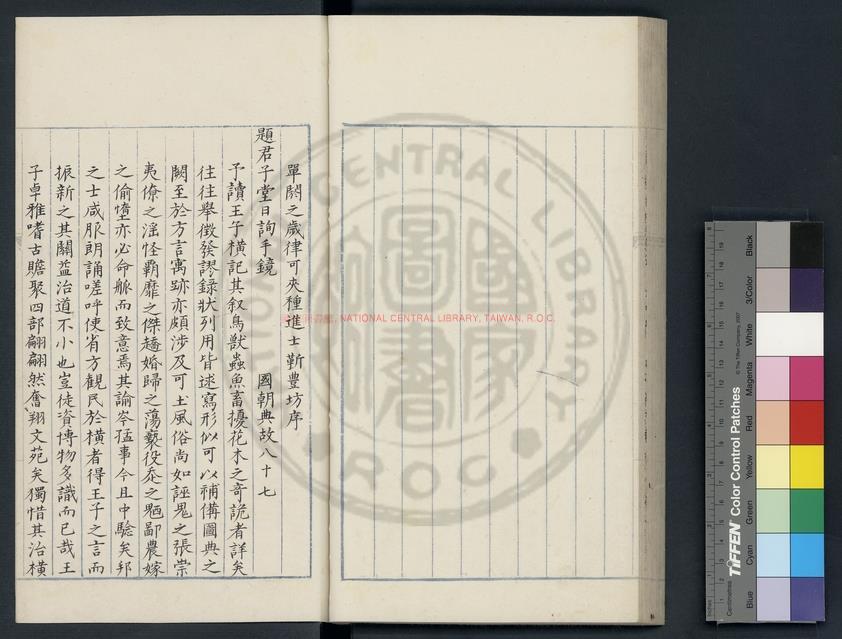 單閼之歲律可夾種進士鄞豊坊序
題君子堂日詢手鏡 國朝典故八十七
予讀王子橫記其叙鳥獸蟲魚畜擾花木之奇詭者詳矣
往往舉徵發謬錄狀列用皆逑寫形似可以補僃圖典之
闕至於方言寓跡亦頗涉及可土風俗尚如誣鬼之張崇
夷僚之淫怪覇靡之傑趫婚歸之蕩褻役忝之鄙農嫁
之偷墮亦必命觚而致意焉其諭岑猛事今且中驗矣邦
之士咸服朗誦嗟呼使省方觀民於橫者得王子之言而
振新之其關益治道不小也豈徒資博物多識而已哉王
子卓雅嗜古贍聚四部翩翩然奮翔文苑矣獨惜其治橫
NATIONAL CENTRAL LIBRARY, TAIWAN, R.O.C.
NATIONAL CENTRAL LIBRARY
ROC
TIFFEN Color Control Patches
© The Tiffen Company, 2007
Blue Cyan Green Yellow Red Magenta White 3/Color Black
Inches
Centimetres